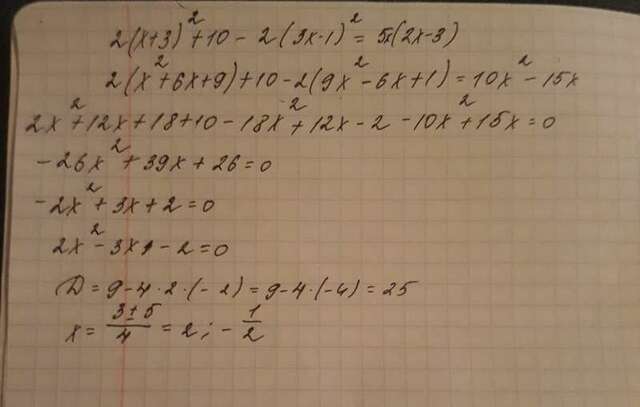 2(x+3)²+10-2(3x-1)²=5x(2x-3)
2(x²+6x+9)+10-2(9x²-6x+1)=10x²-15x
2x²+12x+18+10-18x²+12x-2-10x²+15x=0
-26x²+39x+26=0
-2x²+3x+2=0
2x²-3x-2=0
D=9-4·2·(-2)=9-4·(-4)=25
x=\frac{3±5}{4}=2;-\frac{1}{2}